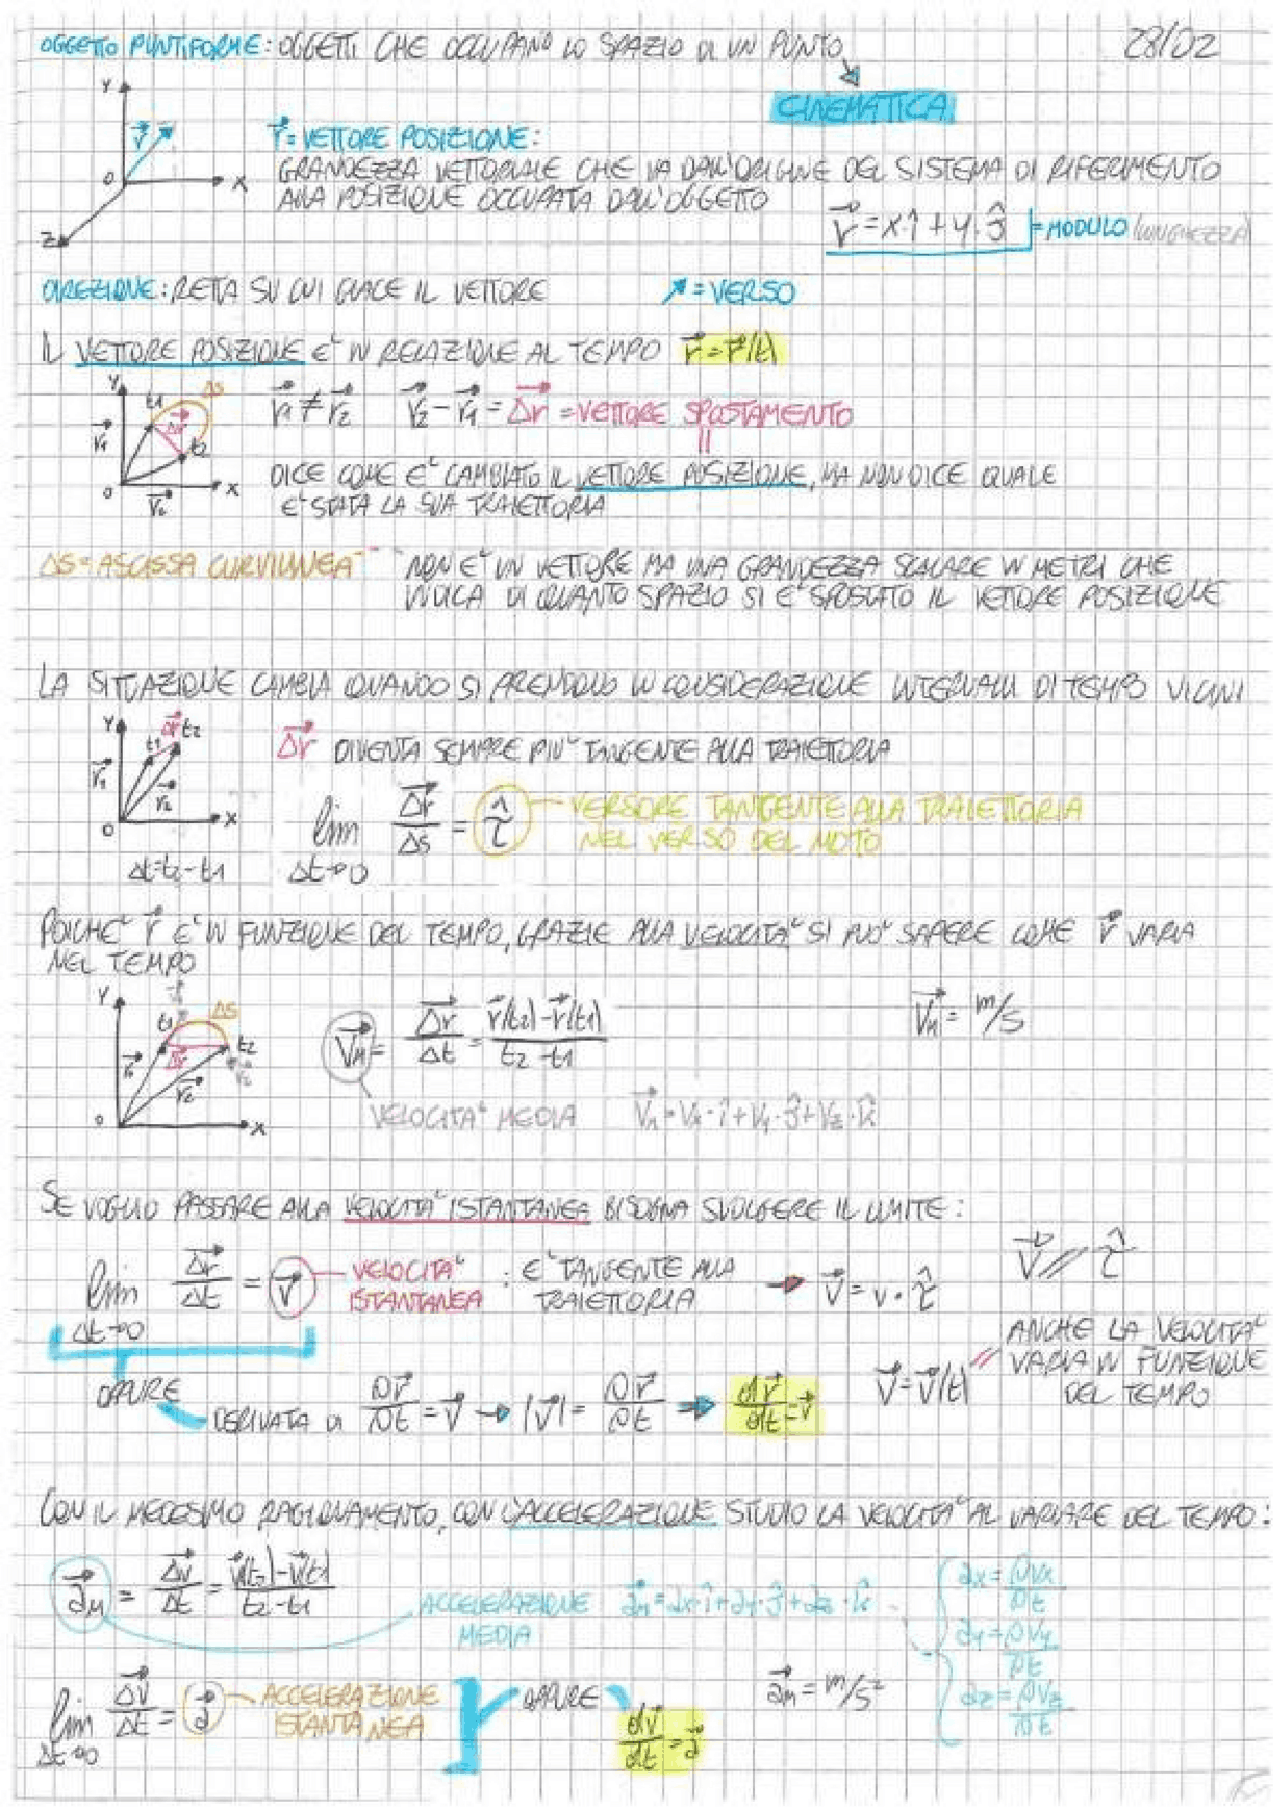 OGGETTO PUNTIFORME: OGGETTI CHE OCCUPANO LO SPAZIO DI UN PUNTO
28/02
CINEMATICA
Y
V⃗
O
X
Z
r⃗ = VETTORE POSIZIONE:
GRANDEZZA VETTORIALE CHE VA DALL'ORIGINE DEL SISTEMA DI RIFERIMENTO
ALLA POSIZIONE OCCUPATA DALL'OGGETTO
r⃗ = x·î + y·ĵ = MODULO (LUNGHEZZA)
DIREZIONE: RETTA SU CUI GIACE IL VETTORE ↗ = VERSO
IL VETTORE POSIZIONE E' IN RELAZIONE AL TEMPO r⃗ = r⃗(t)
Y t1 Δs
r⃗1 Δr⃗ t2
O r⃗2 X
r⃗1 ≠ r⃗2 r⃗2 - r⃗1 = Δr⃗ = VETTORE SPOSTAMENTO
DICE COME E' CAMBIATO IL VETTORE POSIZIONE, MA NON DICE QUALE
E' STATA LA SUA TRAIETTORIA
Δs = ASCISSA CURVILINEA - NON E' UN VETTORE MA UNA GRANDEZZA SCALARE IN METRI CHE
INDICA DI QUANTO SPAZIO SI E' SPOSTATO IL VETTORE POSIZIONE
LA SITUAZIONE CAMBIA QUANDO SI PRENDONO IN CONSIDERAZIONE INTERVALLI DI TEMPO VICINI
Y t1 Δr⃗ t2
r⃗1 r⃗2
O X
Δt=t2-t1
Δr⃗ DIVENTA SEMPRE PIU' TANGENTE ALLA TRAIETTORIA
lim Δt→0 Δr⃗/Δs = τ̂ - VERSORE TANGENTE ALLA TRAIETTORIA
NEL VERSO DEL MOTO
POICHE' r⃗ E' IN FUNZIONE DEL TEMPO, GRAZIE ALLA VELOCITA' SI PUO' SAPERE COME r⃗ VARIA
NEL TEMPO
Y t1 Δs
r⃗1 Δr⃗ t2
r⃗2
O X
V⃗M = Δr⃗/Δt = (r⃗(t2)-r⃗(t1))/(t2-t1) V⃗M = m/s
VELOCITA' MEDIA V⃗M = Vx·î + Vy·ĵ + Vz·k̂
SE VOGLIO PASSARE ALLA VELOCITA' ISTANTANEA BISOGNA SVOLGERE IL LIMITE:
lim Δt→0 Δr⃗/Δt = v⃗ - VELOCITA' ISTANTANEA : E' TANGENTE ALLA TRAIETTORIA → v⃗ = v·τ̂ V⃗ // τ̂
OPPURE
DERIVATA DI Dr⃗/Dt = v⃗ → |v⃗| = Dr⃗/Dt → dr⃗/dt = v⃗ V⃗ = V⃗(t)
ANCHE LA VELOCITA'
VARIA IN FUNZIONE
DEL TEMPO
CON IL MEDESIMO RAGIONAMENTO, CON L'ACCELERAZIONE STUDIO LA VELOCITA' AL VARIARE DEL TEMPO:
a⃗M = Δv⃗/Δt = (v⃗(t2)-v⃗(t1))/(t2-t1)
ACCELERAZIONE MEDIA a⃗M = ax·î + ay·ĵ + az·k̂
ax = Dvx/Dt
ay = Dvy/Dt
az = Dvz/Dt
lim Δt→0 Δv⃗/Δt = a⃗ - ACCELERAZIONE ISTANTANEA
OPPURE
dv⃗/dt = a⃗
a⃗M = m/s²